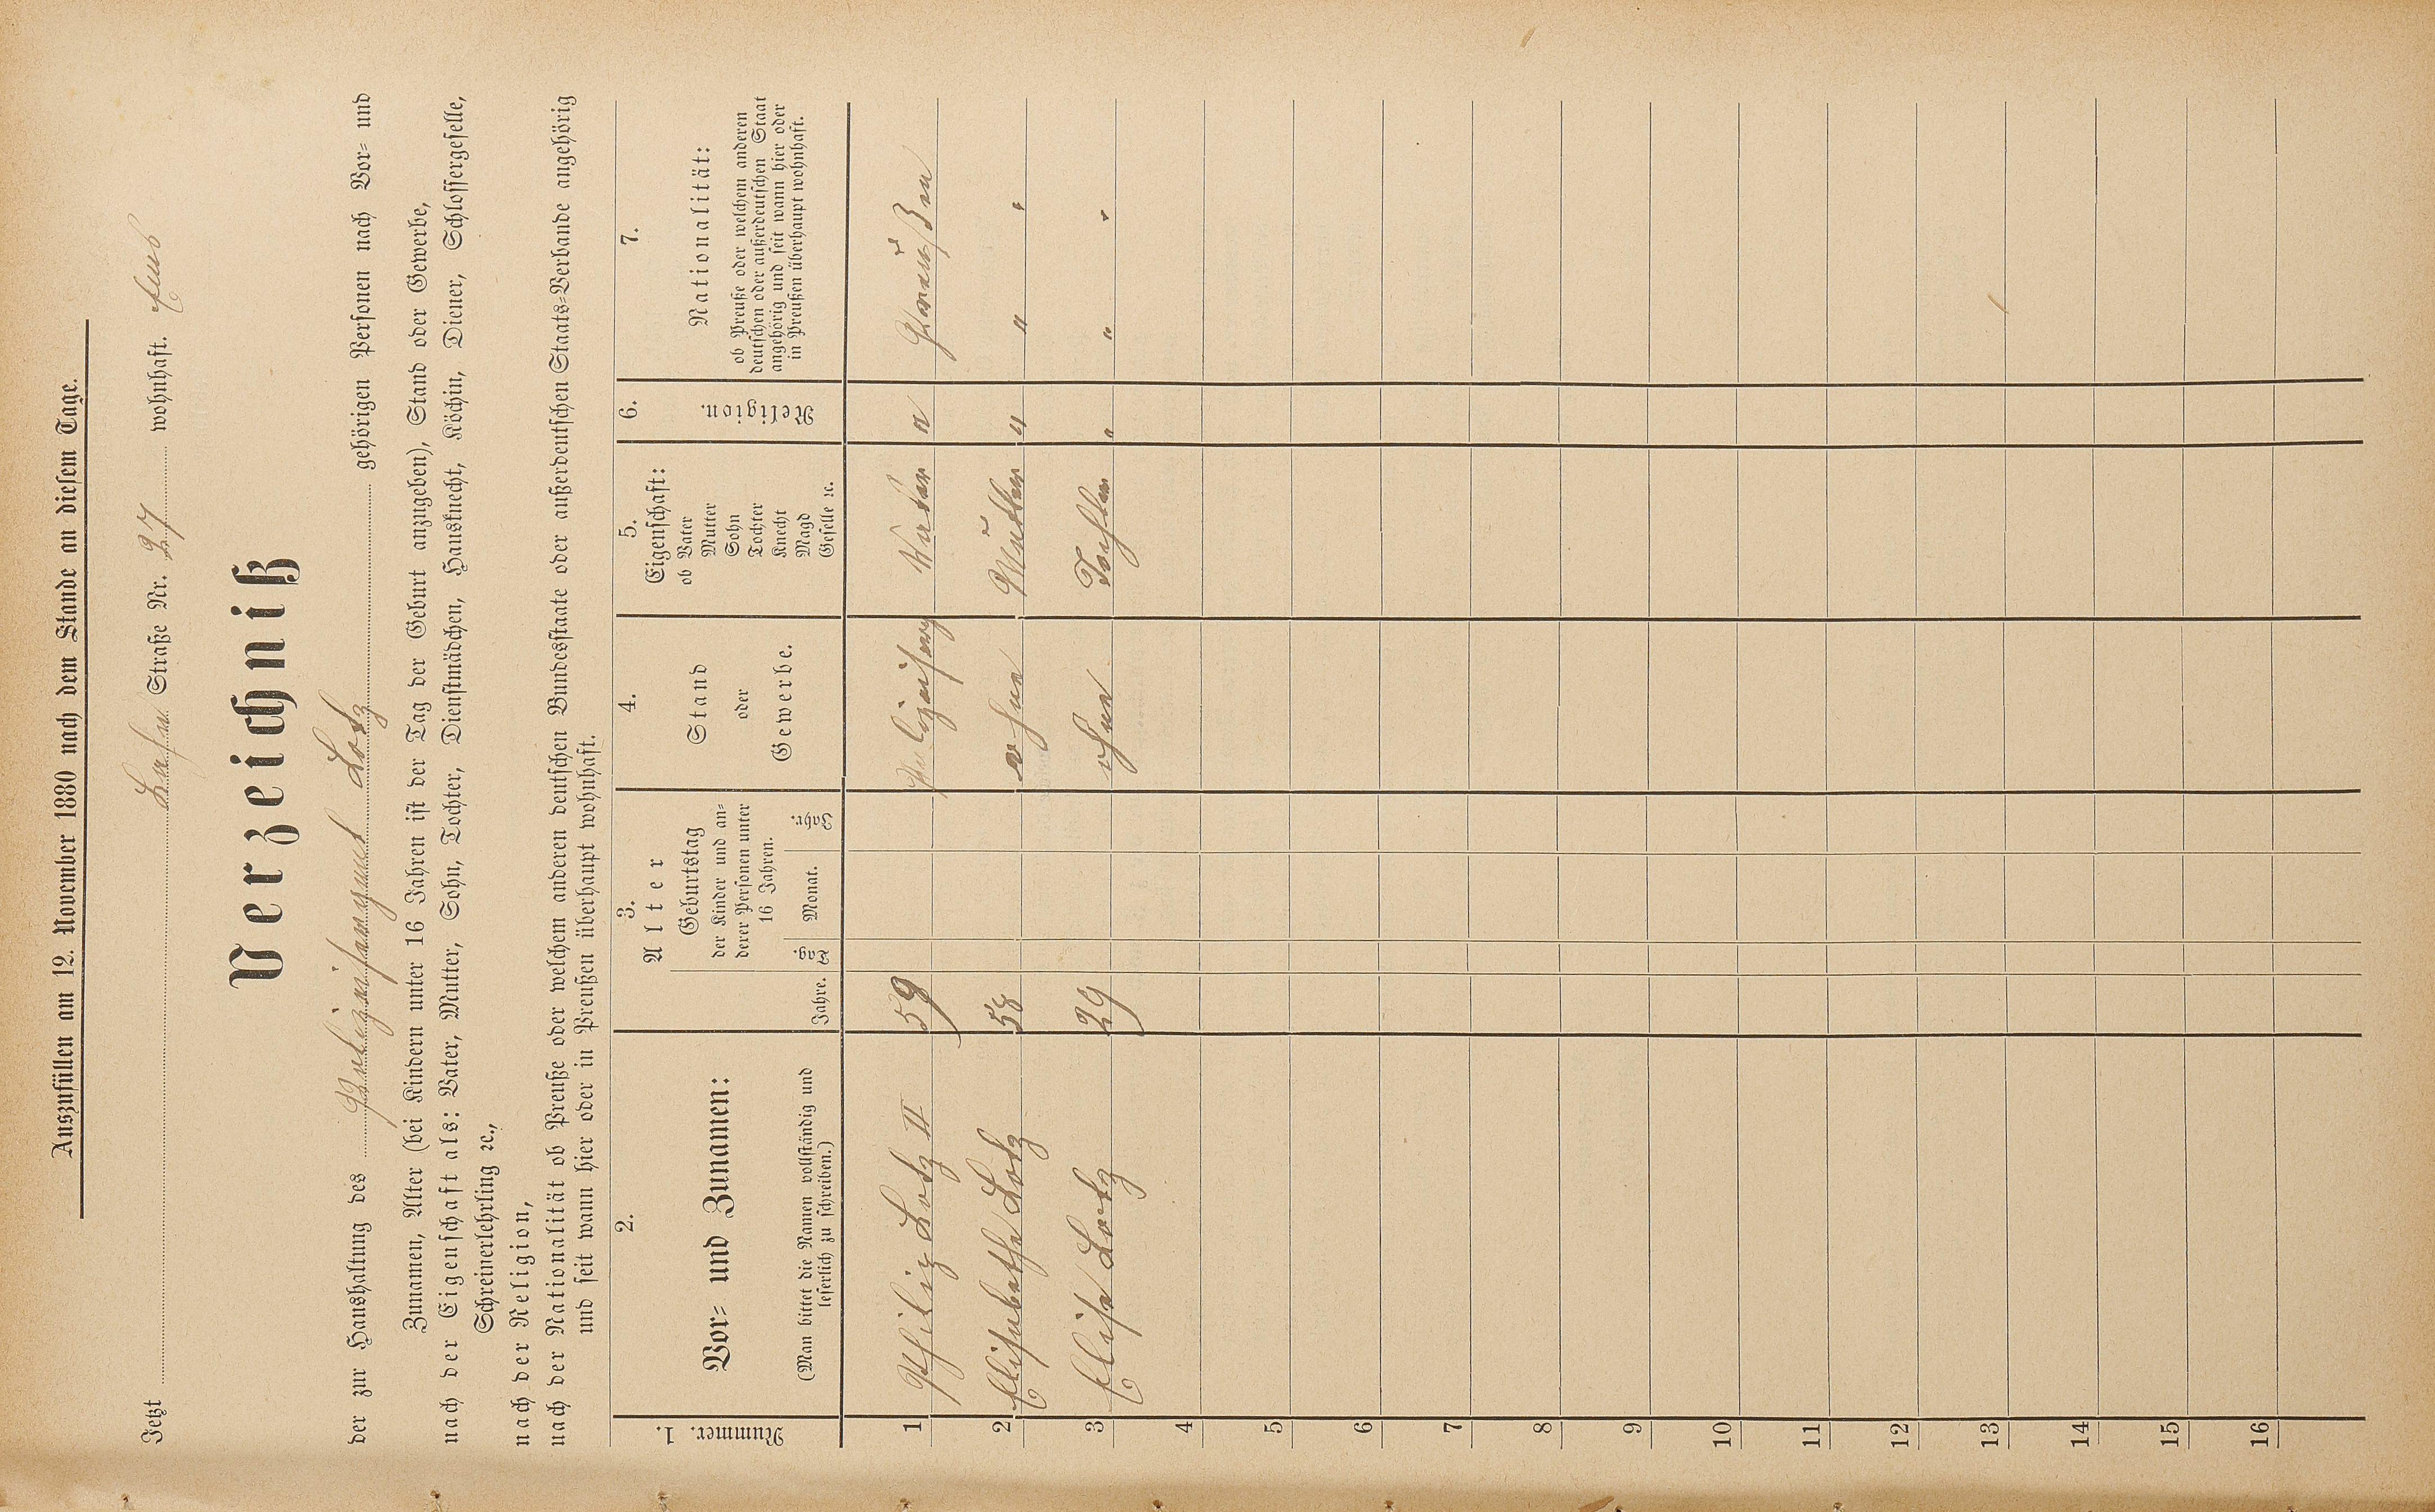 Auszufüllen am 12. November 1880 nach dem Stande an diesem Tage.
Jetzt Lahn Straße Nr. 27 wohnhaft. Ems
Verzeichniß
der zur Haushaltung des Polizeisergent Lotz gehörigen Personen nach Vor- und
Zunamen, Alter (bei Kindern unter 16 Jahren ist der Tag der Geburt anzugeben), Stand oder Gewerbe,
nach der Eigenschaft als: Vater, Mutter, Sohn, Tochter, Dienstmädchen, Hausknecht, Köchin, Diener, Schlossergeselle,
Schreinerlehrling ꝛc.,
nach der Religion,
nach der Nationalität ob Preuße oder welchem anderen deutschen Bundesstaate oder außerdeutschen Staats-Verbande angehörig
und seit wann hier oder in Preußen überhaupt wohnhaft.
1. Nummer.
2.
Vor- und Zunamen:
(Man bittet die Namen vollständig und
leserlich zu schreiben.)
3.
Alter
Jahre.
Geburtstag
der Kinder und an-
derer Personen unter
16 Jahren.
Tag Monat. Jahr.
4.
Stand
oder
Gewerbe.
5.
Eigenschaft:
ob Vater
Mutter
Sohn
Tochter
Knecht
Magd
Geselle ꝛc.
6.
Religion.
7.
Nationalität:
ob Preuße oder welchem anderen
deutschen oder außerdeutschen Staat
angehörig und seit wann hier oder
in Preußen überhaupt wohnhaft.
1 Philipp Lotz II 59 Vater Preußen
2 Elisabethe Lotz 58 ohne Mutter " " "
3 Elise Lotz 29 ohne Tochter " " "
4
5
6
7
8
9
10
11
12
13
14
15
16